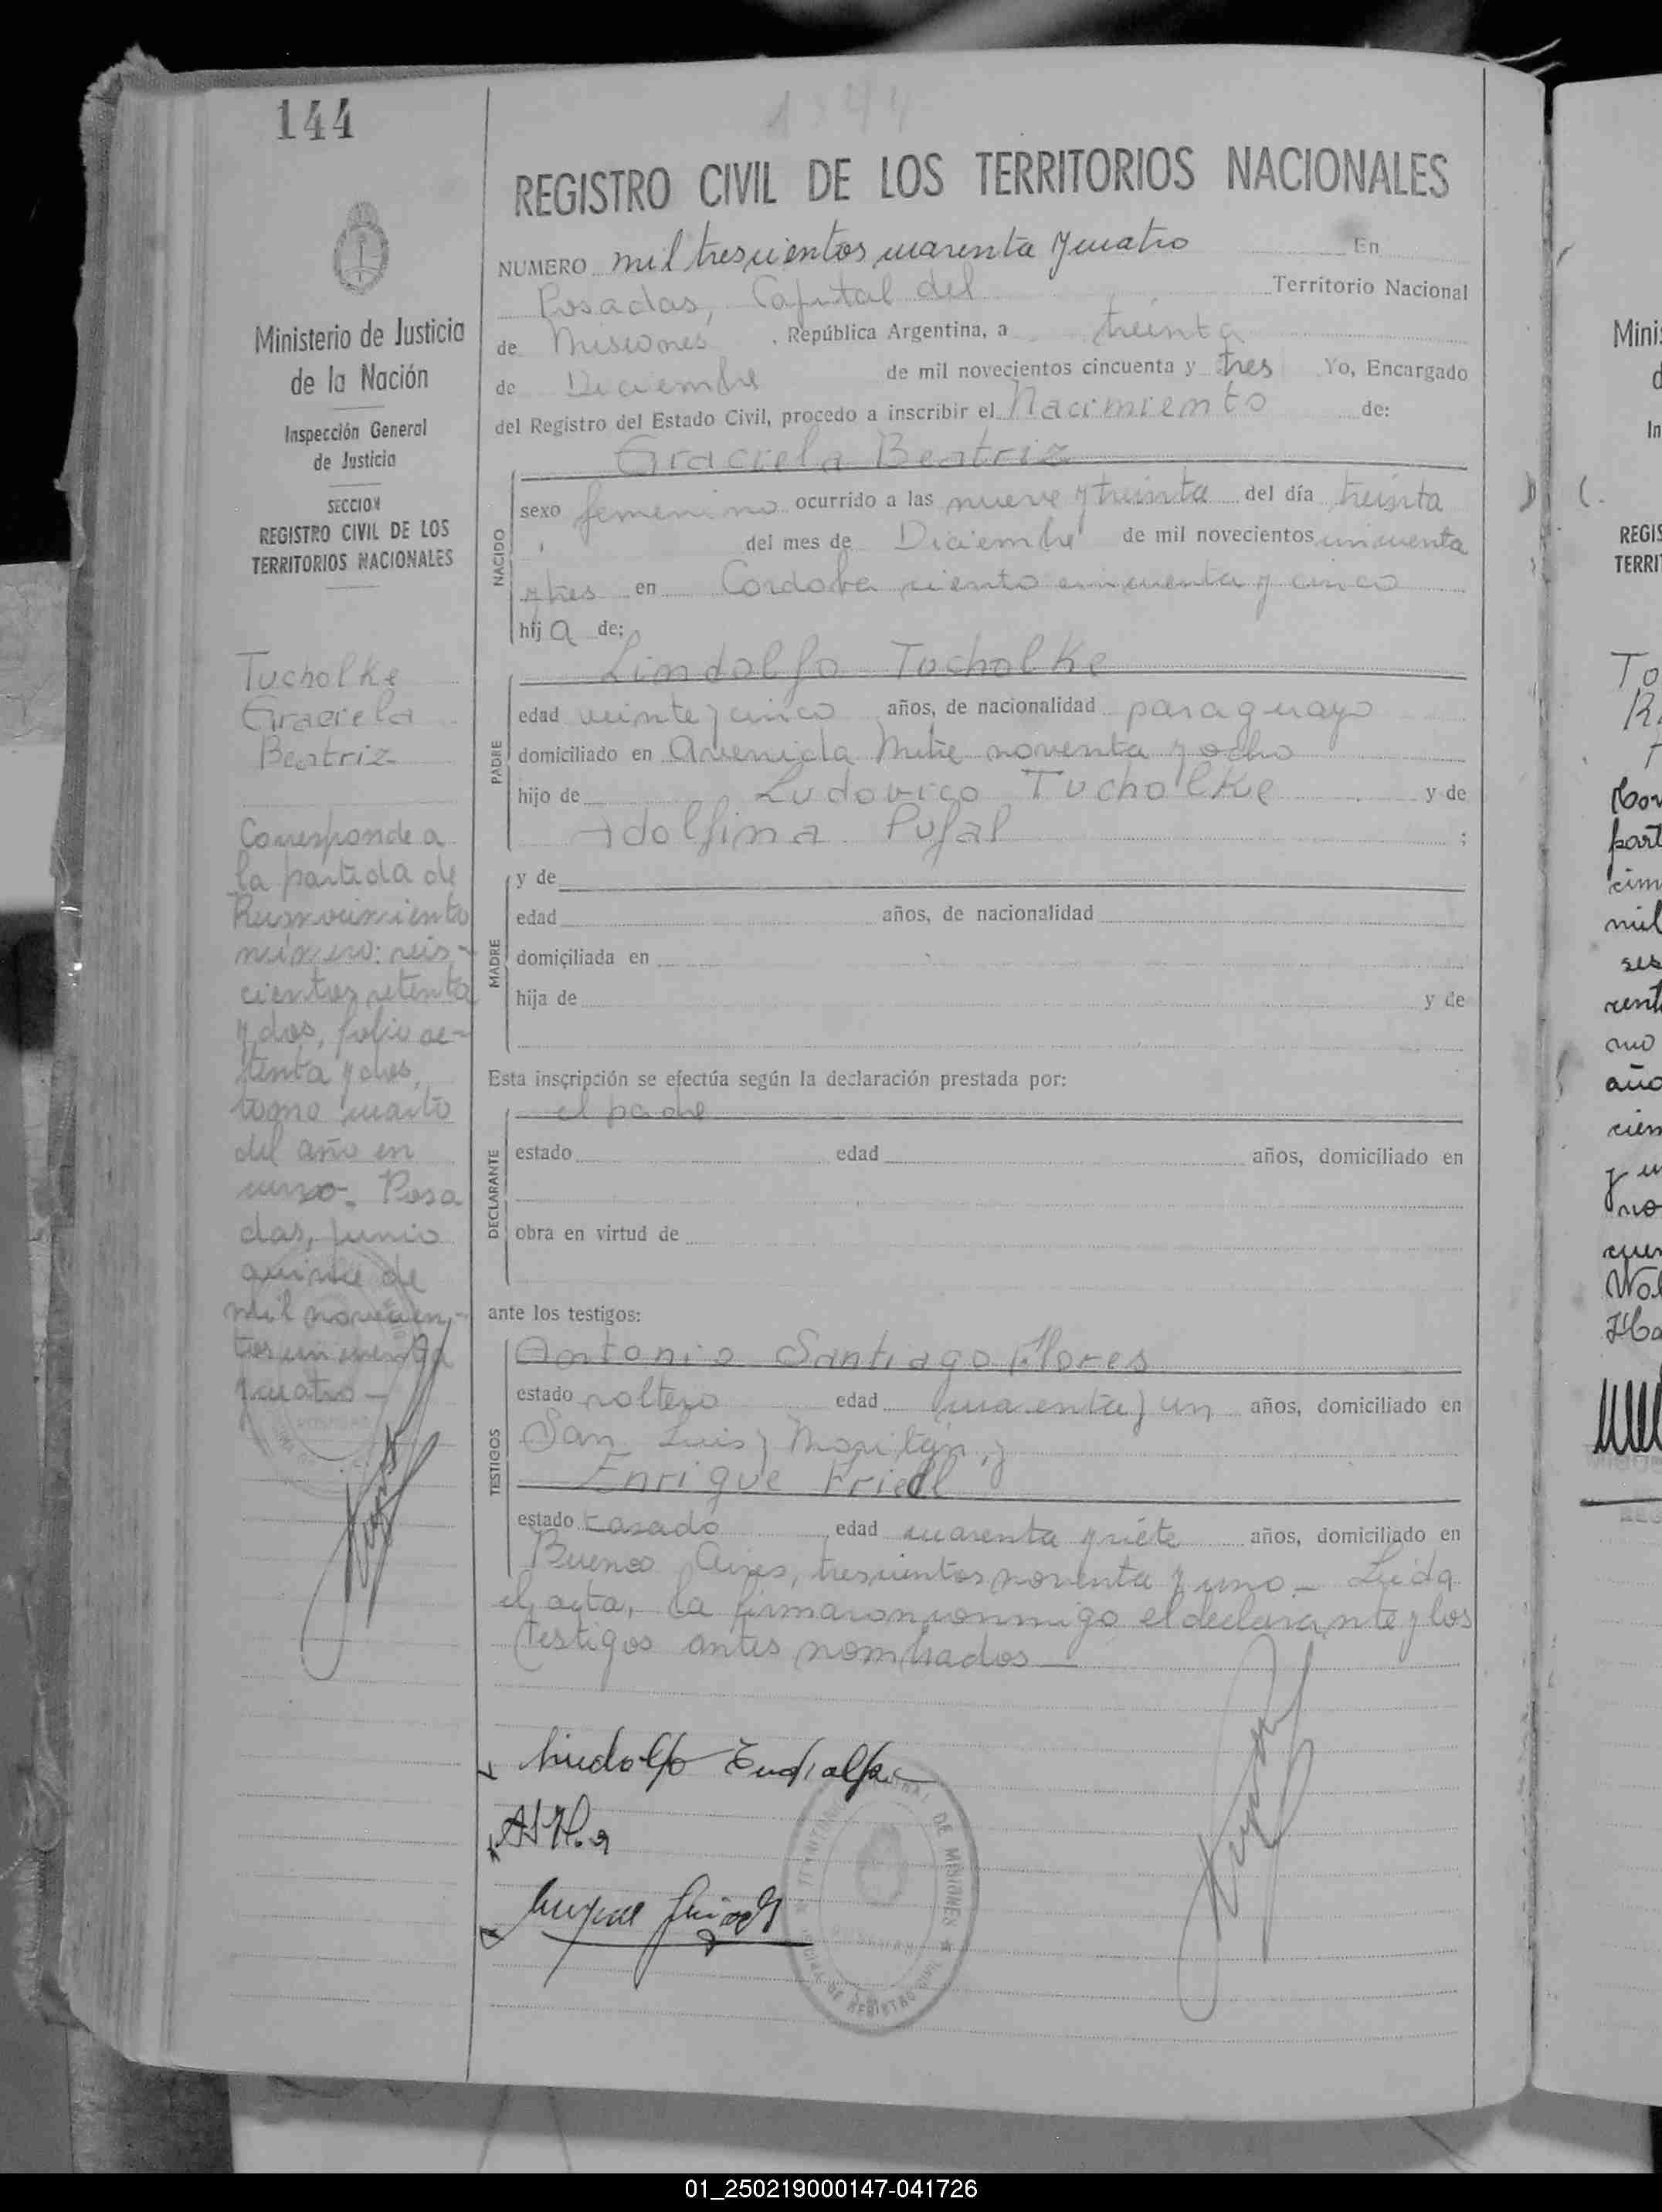 144
1344
REGISTRO CIVIL DE LOS TERRITORIOS NACIONALES
NUMERO mil trescientos cuarenta y cuatro En
Posadas, Capital del Territorio Nacional
de Misiones, República Argentina, a treinta
de Diciembre de mil novecientos cincuenta y tres Yo, Encargado
del Registro del Estado Civil, procedo a inscribir el Nacimiento de:
Graciela Beatriz
NACIDO
sexo femenino ocurrido a las nueve y treinta del día treinta
del mes de Diciembre de mil novecientos cincuenta
y tres en Cordoba ciento cincuenta y cinco
hij a de:
Lindolfo Tucholke
PADRE
edad veinte y cinco años, de nacionalidad paraguayo
domiciliado en Avenida Mitre noventa y ocho
hijo de Ludovico Tucholke y de
Adolfina Pufal ;
MADRE
y de
edad años, de nacionalidad
domiciliada en
hija de y de
Esta inscripción se efectúa según la declaración prestada por:
el padre
DECLARANTE
estado edad años, domiciliado en
obra en virtud de
ante los testigos:
TESTIGOS
Antonio Santiago Flores
estado soltero edad cuarenta y un años, domiciliado en
San Luis y Moritán, y
Enrique Friedl
estado casado edad cuarenta y siete años, domiciliado en
Buenos Aires, trescientos noventa y uno - Leida
el acta, la firmaron conmigo el declarante y los
testigos antes nombrados
Ministerio de Justicia
de la Nación
Inspección General
de Justicia
SECCION
REGISTRO CIVIL DE LOS
TERRITORIOS NACIONALES
Tucholke
Graciela
Beatriz
Corresponde a
la partida de
Reconocimiento
número: seis-
cientos setenta
y dos, folio se-
tenta y dos,
tomo cuarto
del año en
curso. Posa
das, Junio
quince de
mil novecien-
tos cincuenta
y cuatro -
Lindolfo
TERRITORIO NACIONAL DE MISIONES
Mini
REGIS
TERRI
01_250219000147-041726